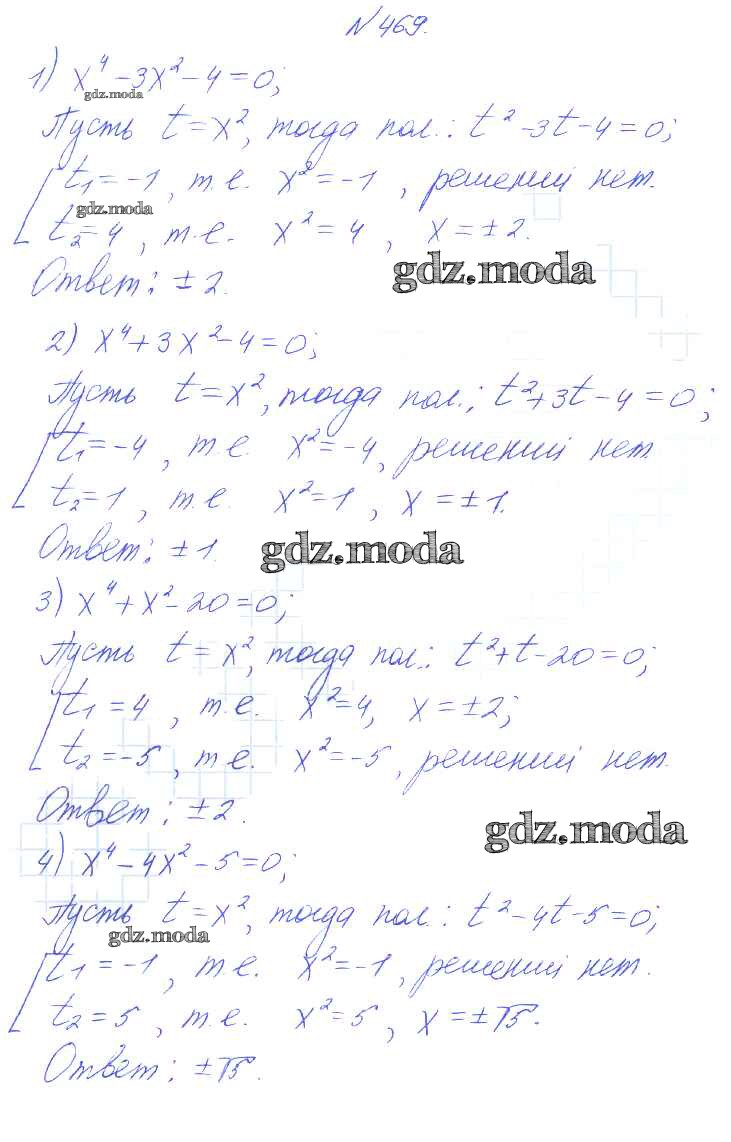 № 469.
1) x⁴ - 3x² - 4 = 0;
gdz.moda
Пусть t = x², тогда пол.: t² - 3t - 4 = 0;
t₁ = -1, т.е. x² = -1, решений нет.
gdz.moda
t₂ = 4, т.е. x² = 4, x = ±2.
Ответ: ±2.
gdz.moda
2) x⁴ + 3x² - 4 = 0;
Пусть t = x², тогда пол.: t² + 3t - 4 = 0;
t₁ = -4, т.е. x² = -4, решений нет.
t₂ = 1, т.е. x² = 1, x = ±1.
Ответ: ±1.
gdz.moda
3) x⁴ + x² - 20 = 0;
Пусть t = x², тогда пол.: t² + t - 20 = 0;
t₁ = 4, т.е. x² = 4, x = ±2;
t₂ = -5, т.е. x² = -5, решений нет.
Ответ: ±2.
gdz.moda
4) x⁴ - 4x² - 5 = 0;
Пусть t = x², тогда пол.: t² - 4t - 5 = 0;
gdz.moda
t₁ = -1, т.е. x² = -1, решений нет.
t₂ = 5, т.е. x² = 5, x = ±√5.
Ответ: ±√5.